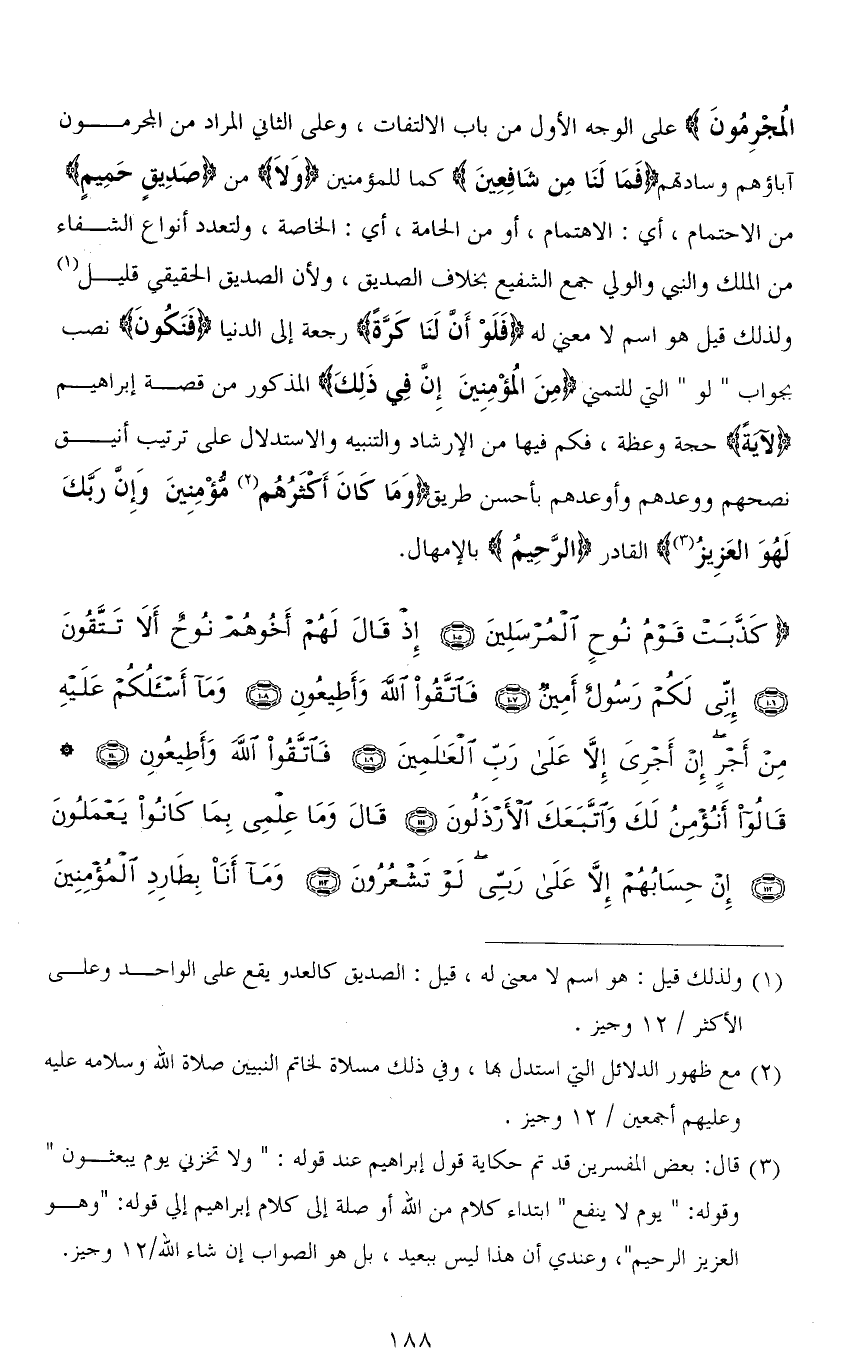 المُجْرِمُونَ ﴾ على الوجه الأول من باب الالتفات ، وعلى الثاني المراد من المجرمون
آباؤهم وسادتهم﴿فَمَا لَنَا مِن شَافِعِينَ ﴾ كما للمؤمنين ﴿وَلاَ﴾ من ﴿صَدِيقٍ حَمِيمٍ﴾
من الاحتمام ، أي : الاهتمام ، أو من الحامة ، أي : الخاصة ، ولتعدد أنواع الشفاء
من الملك والنبي والولي جمع الشفيع بخلاف الصديق ، ولأن الصديق الحقيقي قليل(١)
ولذلك قيل هو اسم لا معنى له ﴿فَلَوْ أَنَّ لَنَا كَرَّةً﴾ رجعة إلى الدنيا ﴿فَنَكُونَ﴾ نصب
بجواب " لو " التي للتمني ﴿مِنَ الْمُؤْمِنِينَ إِنَّ فِي ذَلِكَ﴾ المذكور من قصة إبراهيم
﴿لآيَةً﴾ حجة وعظة ، فكم فيها من الإرشاد والتنبيه والاستدلال على ترتيب أنيق
نصحهم ووعدهم وأوعدهم بأحسن طريق﴿وَمَا كَانَ أَكْثَرُهُم(٢) مُّؤْمِنِينَ وَإِنَّ رَبَّكَ
لَهُوَ العَزِيزُ(٣)﴾ القادر ﴿الرَّحِيمُ ﴾ بالإمهال.
﴿ كَذَّبَتْ قَوْمُ نُوحٍ ٱلْمُرْسَلِينَ ١٠٥ إِذْ قَالَ لَهُمْ أَخُوهُمْ نُوحٌ أَلَا تَتَّقُونَ
١٠٦ إِنِّى لَكُمْ رَسُولٌ أَمِينٌ ١٠٧ فَٱتَّقُوا۟ ٱللَّهَ وَأَطِيعُونِ ١٠٨ وَمَآ أَسْـَٔلُكُمْ عَلَيْهِ
مِنْ أَجْرٍ ۖ إِنْ أَجْرِىَ إِلَّا عَلَىٰ رَبِّ ٱلْعَـٰلَمِينَ ١٠٩ فَٱتَّقُوا۟ ٱللَّهَ وَأَطِيعُونِ ١١٠ ۞
قَالُوٓا۟ أَنُؤْمِنُ لَكَ وَٱتَّبَعَكَ ٱلْأَرْذَلُونَ ١١١ قَالَ وَمَا عِلْمِى بِمَا كَانُوا۟ يَعْمَلُونَ
١١٢ إِنْ حِسَابُهُمْ إِلَّا عَلَىٰ رَبِّى ۖ لَوْ تَشْعُرُونَ ١١٣ وَمَآ أَنَا۠ بِطَارِدِ ٱلْمُؤْمِنِينَ
(١) ولذلك قيل : هو اسم لا معنى له ، قيل : الصديق كالعدو يقع على الواحد وعلى
الأكثر / ١٢ وجيز .
(٢) مع ظهور الدلائل التي استدل بها ، وفي ذلك مسلاة لخاتم النبيين صلاة الله وسلامه عليه
وعليهم أجمعين / ١٢ وجيز .
(٣) قال: بعض المفسرين قد تم حكاية قول إبراهيم عند قوله : " ولا تخزني يوم يبعثون "
وقوله: " يوم لا ينفع " ابتداء كلام من الله أو صلة إلى كلام إبراهيم إلي قوله: "وهو
العزيز الرحيم"، وعندي أن هذا ليس ببعيد ، بل هو الصواب إن شاء الله/١٢ وجيز.
١٨٨